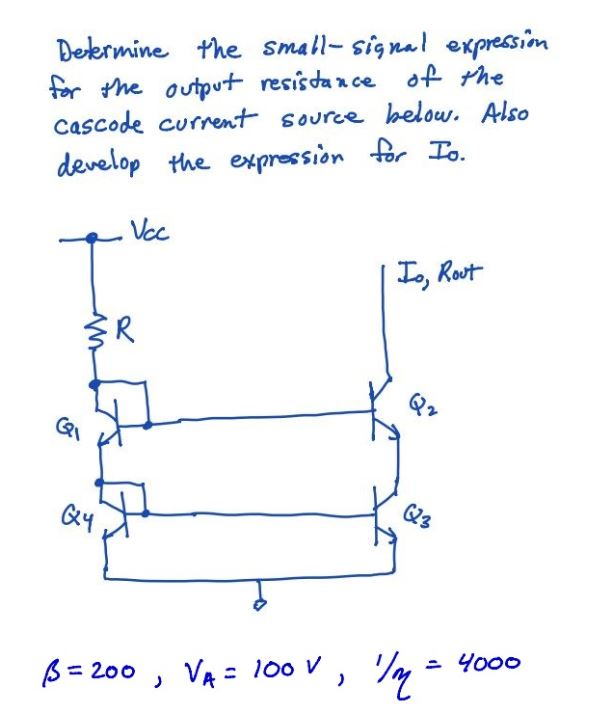 Determine the small-signal expression
for the output resistance of the
cascode current source below. Also
develop the expression for Io.
Vcc
Io, Rout
R
Q1
Q2
Q4
Q3
β = 200 , VA = 100 V , 1/η = 4000